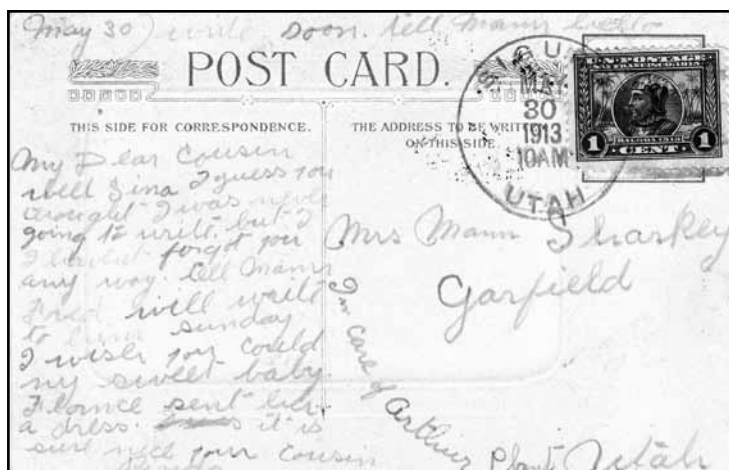 May 30) write soon. tell Mann
POST CARD.
THIS SIDE FOR CORRESPONDENCE.
THE ADDRESS TO BE WRIT
ON THIS SIDE.
U.S. POSTAGE
SAN FRANCISCO
BALBOA 1513
1 CENT 1
MAY
30
1913
10AM
UTAH
My Dear Cousin
well Sina I guess you
thought I was never
going to write but I
havent forgot you
any way. tell Mann
Fred will write
to him sunday
I wish you could
my sweet baby
sent her
a dress. it is
sure nice your cousin
Mrs Mann Sharkey
Garfield
In Care of Arthur Plant Utah